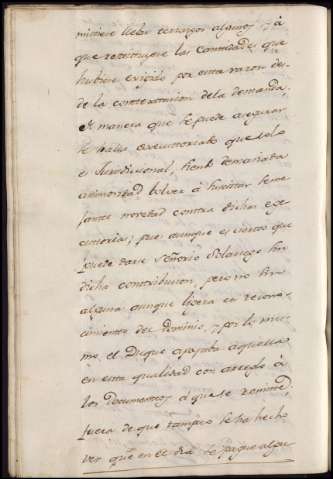 misiese llebar terrazgos algunos, y á
que restituyese las Cantidades que
hubiese exigido por esta razon des-
de la contestacion de la demanda,
de manera que se puede asegurar
se halla executoriado que solo
es Jurisdiccional, siendo demasiada
animosidad bolver á suscitar seme
jante novedad contra dicha exe
cutoria; pues aunque es cierto que
puede darse Señorio Solariego sin
dicha contribucion, pero no sin
alguna aunque ligera en recono-
cimiento del Dominio, y por lo mis-
mo, el Duque apoyaba aquella
en esta qualidad con arreglo à
los Documentos à que se remite,
fuera de que tampoco se ha hecho
ver que en el dia se pague algu